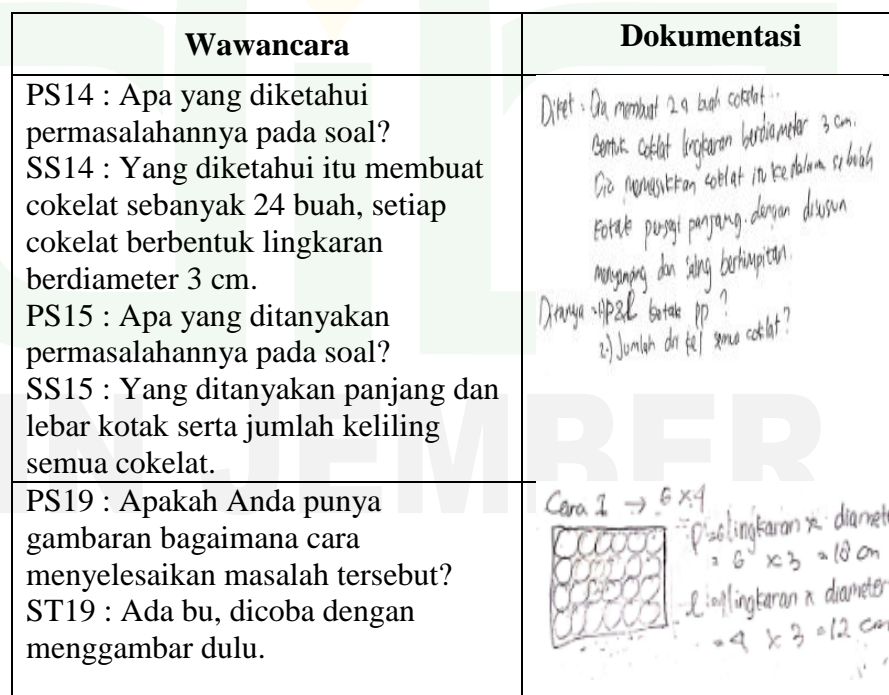 Wawancara
Dokumentasi
PS14 : Apa yang diketahui
permasalahannya pada soal?
SS14 : Yang diketahui itu membuat
cokelat sebanyak 24 buah, setiap
cokelat berbentuk lingkaran
berdiameter 3 cm.
PS15 : Apa yang ditanyakan
permasalahannya pada soal?
SS15 : Yang ditanyakan panjang dan
lebar kotak serta jumlah keliling
semua cokelat.
Diket : Dia membuat 24 buah cokelat..
Bentuk coklat lingkaran berdiameter 3 cm.
Dia memasukkan coklat itu ke dalam sebuah
kotak persegi panjang. dengan disusun
menyamping dan saling berhimpitan.
Ditanya = 1) P & L kotak pp ?
2.) Jumlah dri kel semua coklat?
PS19 : Apakah Anda punya
gambaran bagaimana cara
menyelesaikan masalah tersebut?
ST19 : Ada bu, dicoba dengan
menggambar dulu.
Cara I → 6 x 4
P = 6 lingkaran x diameter
= 6 x 3 = 18 cm
l = 4 lingkaran x diameter
= 4 x 3 = 12 cm
IN JEMBER